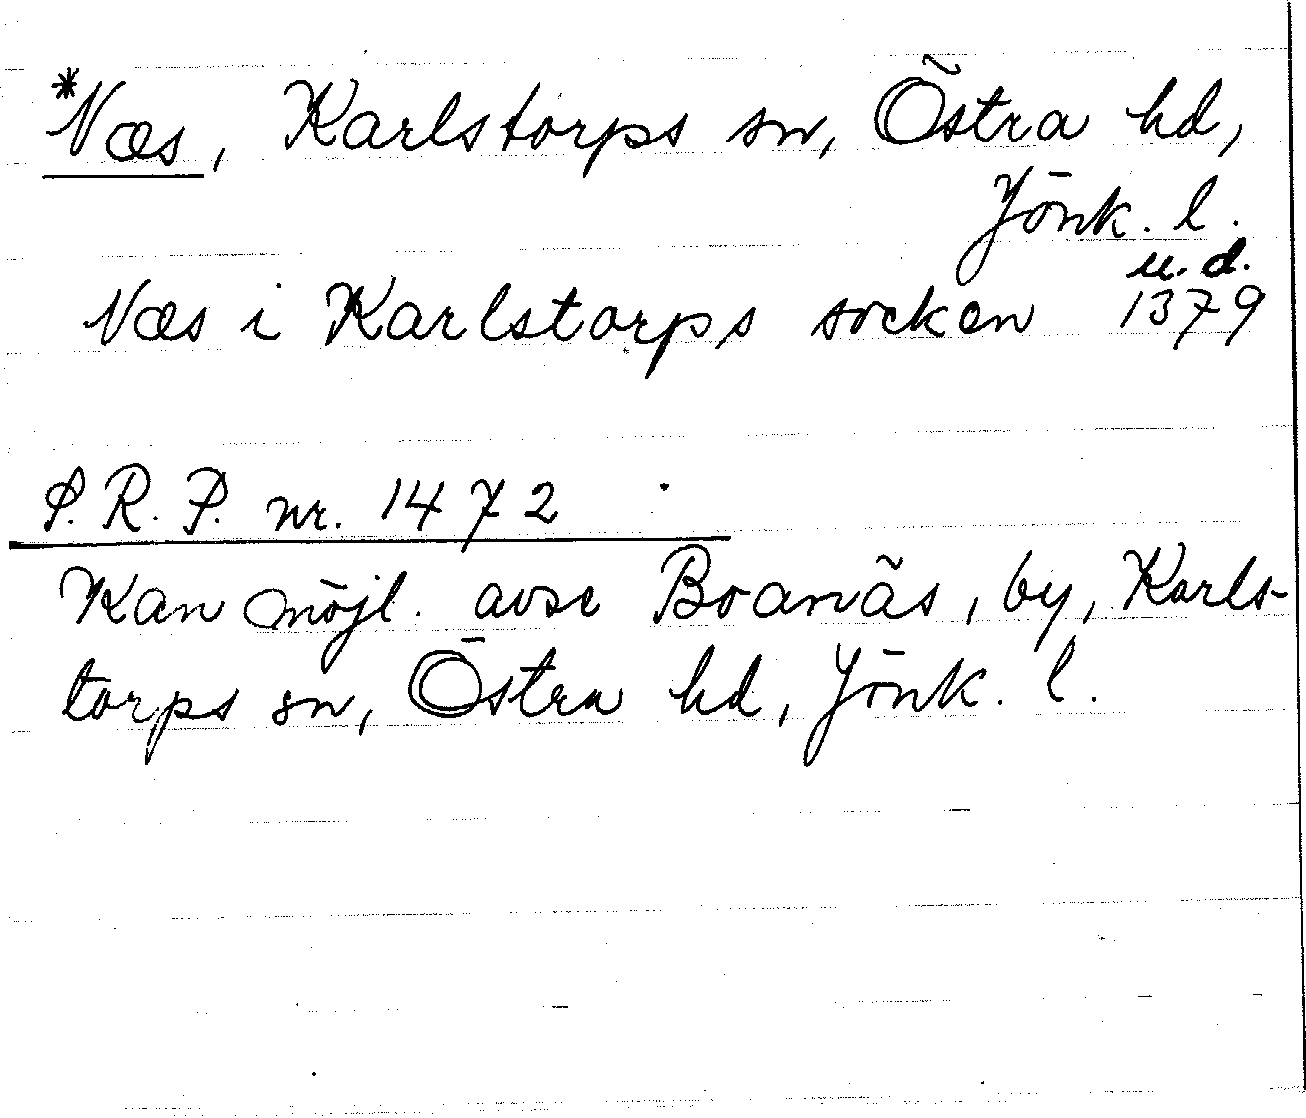 *Næs, Karlstorps sn, Östra hd,
Jönk. l.
u. d.
Næs i Karlstorps socken 1379
S.R.P. nr. 1472
Kan möjl. avse Boanäs, by, Karls-
torps sn, Östra hd, Jönk. l.